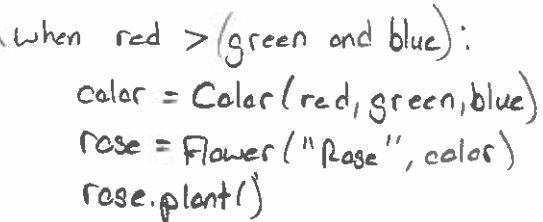 when red > (green and blue):
color = Color(red, green, blue)
rose = Flower("Rose", color)
rose.plant()